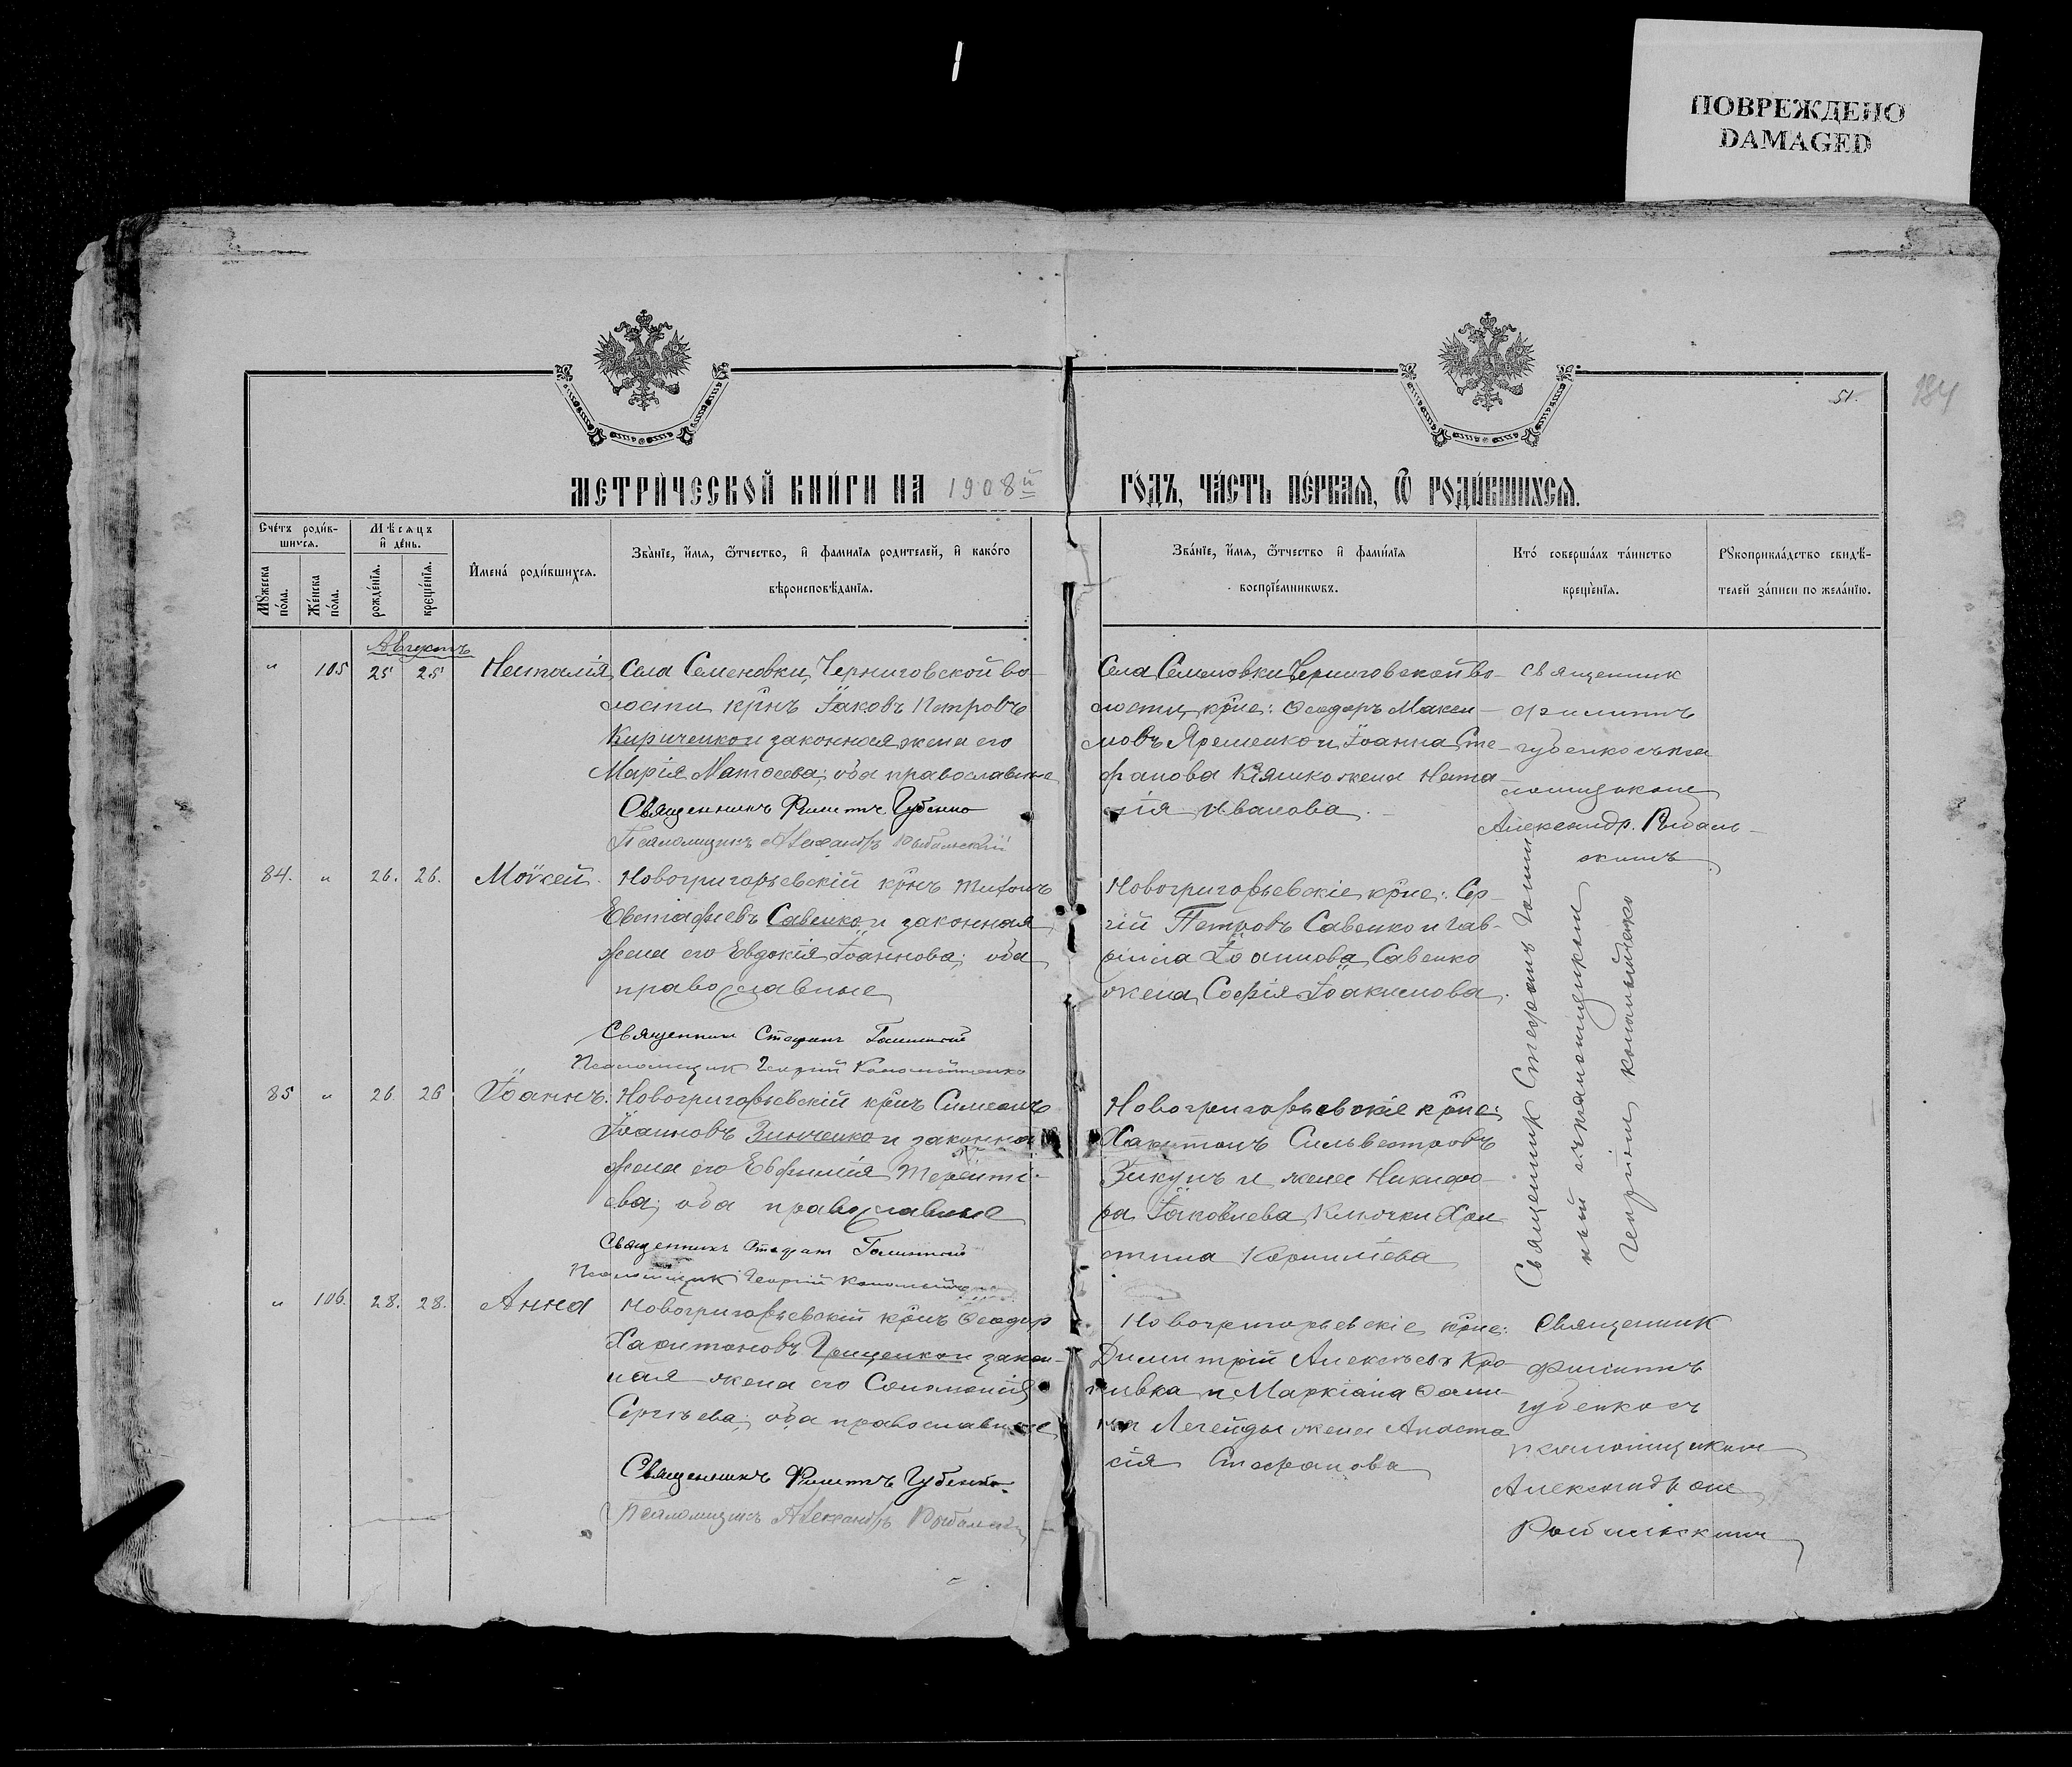 ПОВРЕЖДЕНО
DAMAGED
51.
184
МЕТРИ́ЧЕСКОЙ КНИ́ГИ НА 1908й
ГО́ДЪ, ЧА́СТЬ ПЕ́РВАѦ, Ѽ РОДИ́ВШИХСѦ.
Сче́тъ роди́в-
шихсѧ.
Мѣ́сѧцъ
и҆ де́нь.
Мꙋ́жеска
по́ла.
Же́нска
по́ла.
рожде́нїѧ.
креще́нїѧ.
И҆мена̀ роди́вшихсѧ.
Зва́нїе, и҆́мѧ, ѻ҆́тчество, и҆ фами́лїѧ роди́телей, и҆ како́гѡ
вѣроисповѣ́данїѧ.
Зва́нїе, и҆́мѧ, ѻ҆́тчество и҆ фами́лїѧ
воспрїе́мникѡвъ.
Кто̀ соверша́лъ та́инство
креще́нїѧ.
Рꙋкоприкла́дство свидѣ́-
телей за́писи по жела́нїю.
Августъ
" 105 25 25 Наталія
Села Семеновки, Черниговской во-
лости, крнъ Іаковъ Петровъ
Кириченко и законная жена его
Марія Матѳеева; оба православные
Священникъ Филиппъ Губенко
Псаломщикъ Александръ Рыбальскій
Села Семеновки Черниговской во-
лости, крне: Ѳеодоръ Макси-
мовъ Яременко и Іоанна Сте-
фанова Кіяшко жена Ната-
лія Иванова.
Священник
Филиппъ
Губенко съ пса
ломщиком
Александр. Рыбаль-
скимъ
84. " 26. 26. Моѵсей.
Новогригорьевскій крнъ Тихонъ
Евстафіевъ Савенко и законная
жена его Евдокія Іоаннова; оба
православные
Священник Стефанъ Галинский
Псаломщик Георгій Коломойченко
Новогригорьевскіе крне: Сер-
гій Петровъ Савенко и Гав-
ріила Іоаннова Савенко
жена Софія Іоакимова.
85 " 26. 26 Іоаннъ.
Новогригорьевскій крнъ Симеонъ
Іоанновъ Зинченко и законная
жена его Евфимія Теренті-
ева; оба православные
Священникъ Стефан Галинский
Псаломщик Георгий
Новогригорьевскіе крне:
Харитонъ Сильвестровъ
Зикунъ и жена Никифо-
ра Іаковлева Ключки Хри
стина Корниліева
Священник Стефанъ
съ псаломщиком
Георгіем
" 106. 28. 28. Анна
Новогригорьевскій крнъ Ѳеодор
Харитоновъ Грищенко и закон-
ная жена его Соломонія
Сергіева; оба православные
Священникъ Филиппъ Губенко.
Псаломщикъ Александръ Рыбальскій
Новогригорьевскіе крне:
Димитрій Алексіевъ Кро-
пивка и Маркіана Ѳоми-
на Легейды жена Анаста
сія Стефанова
Священник
Филиппъ
Губенко съ
псаломщиком
Александром
Рыбальским